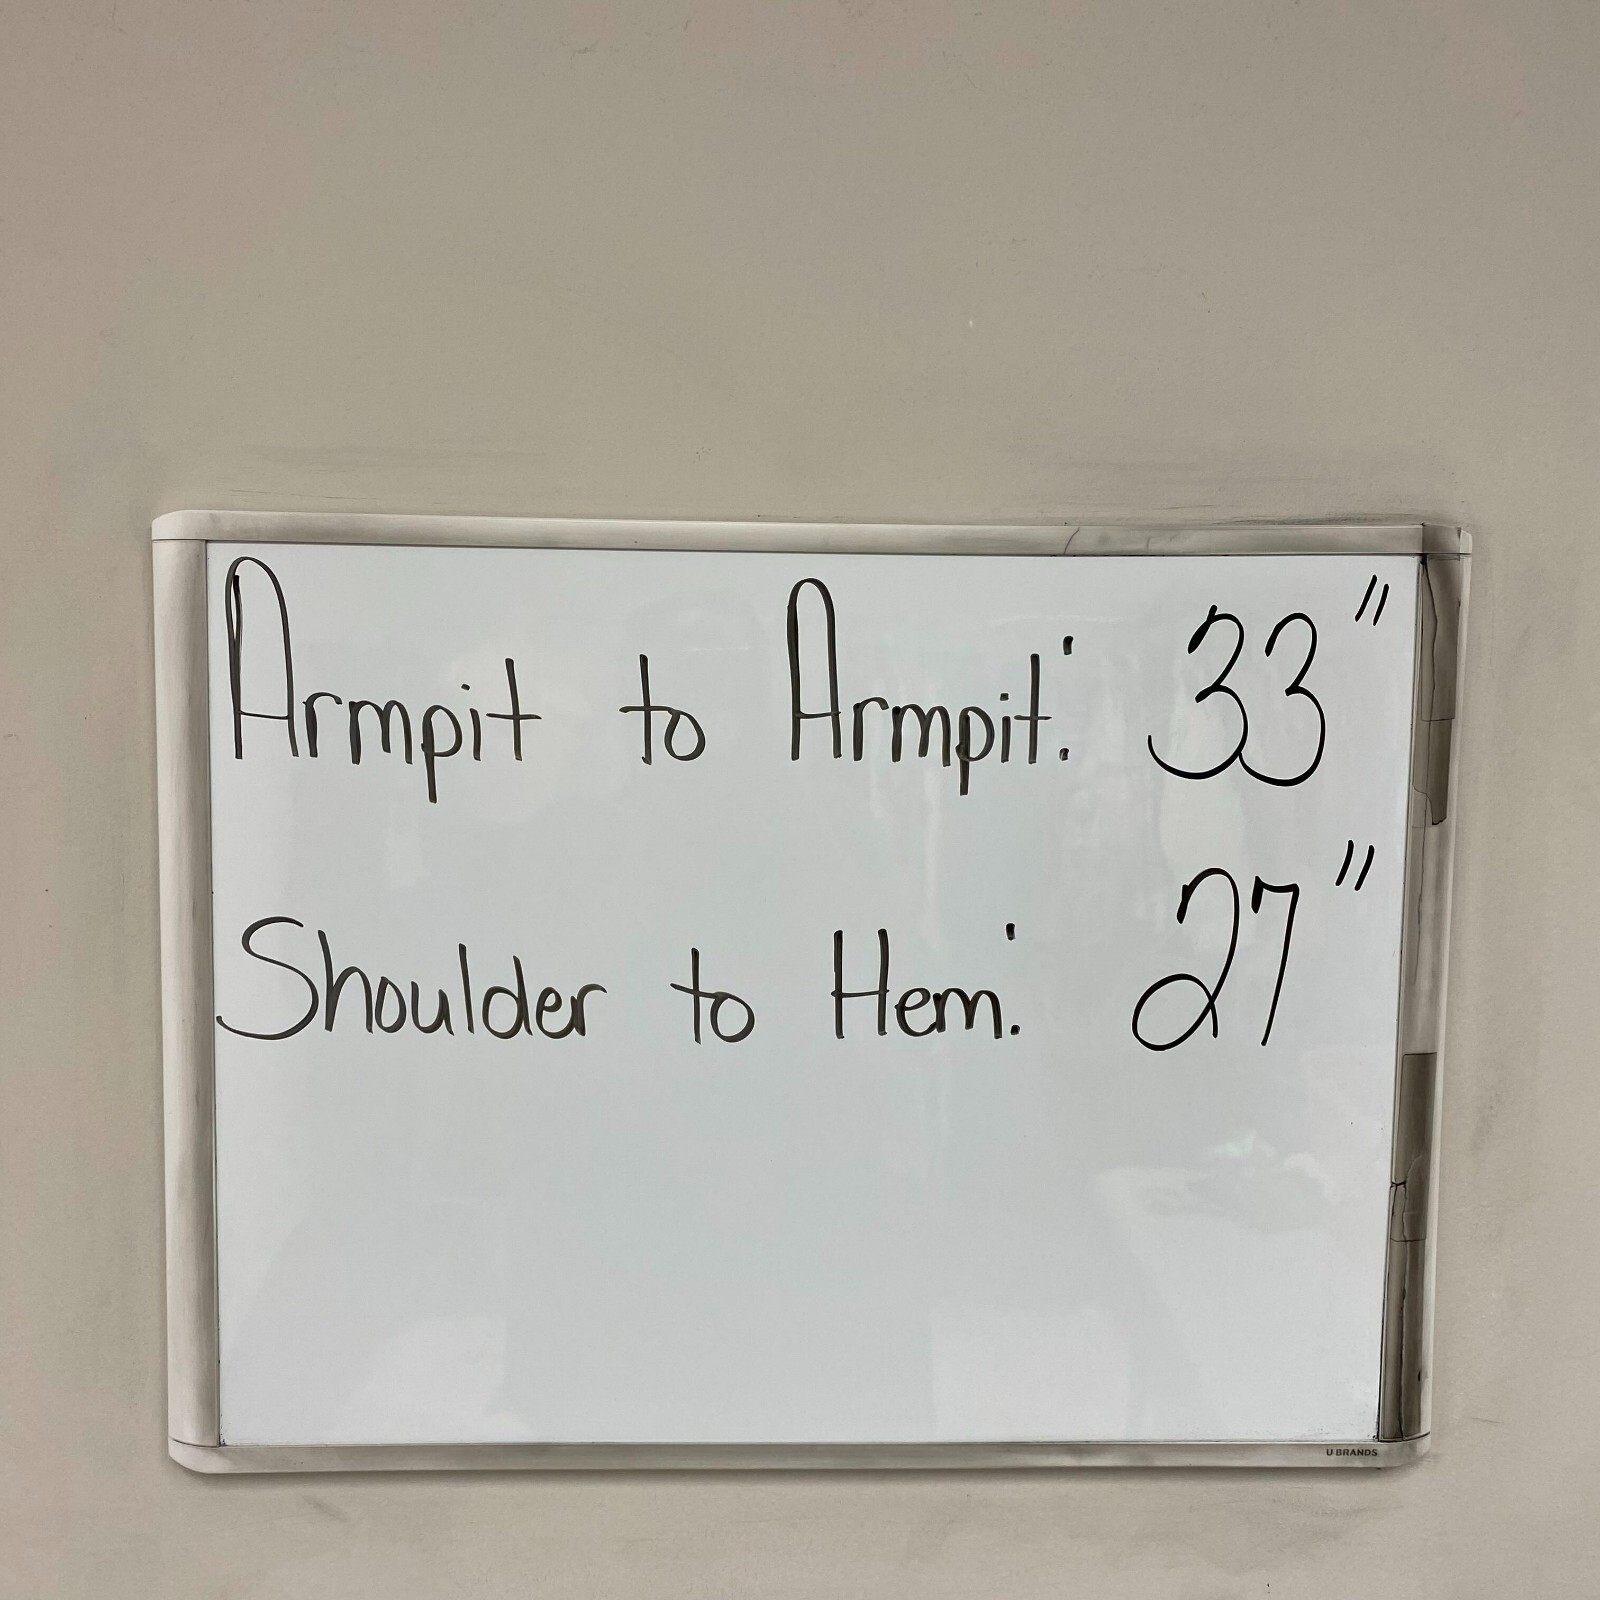 Armpit to Armpit: 33"
Shoulder to Hem: 27"
U BRANDS